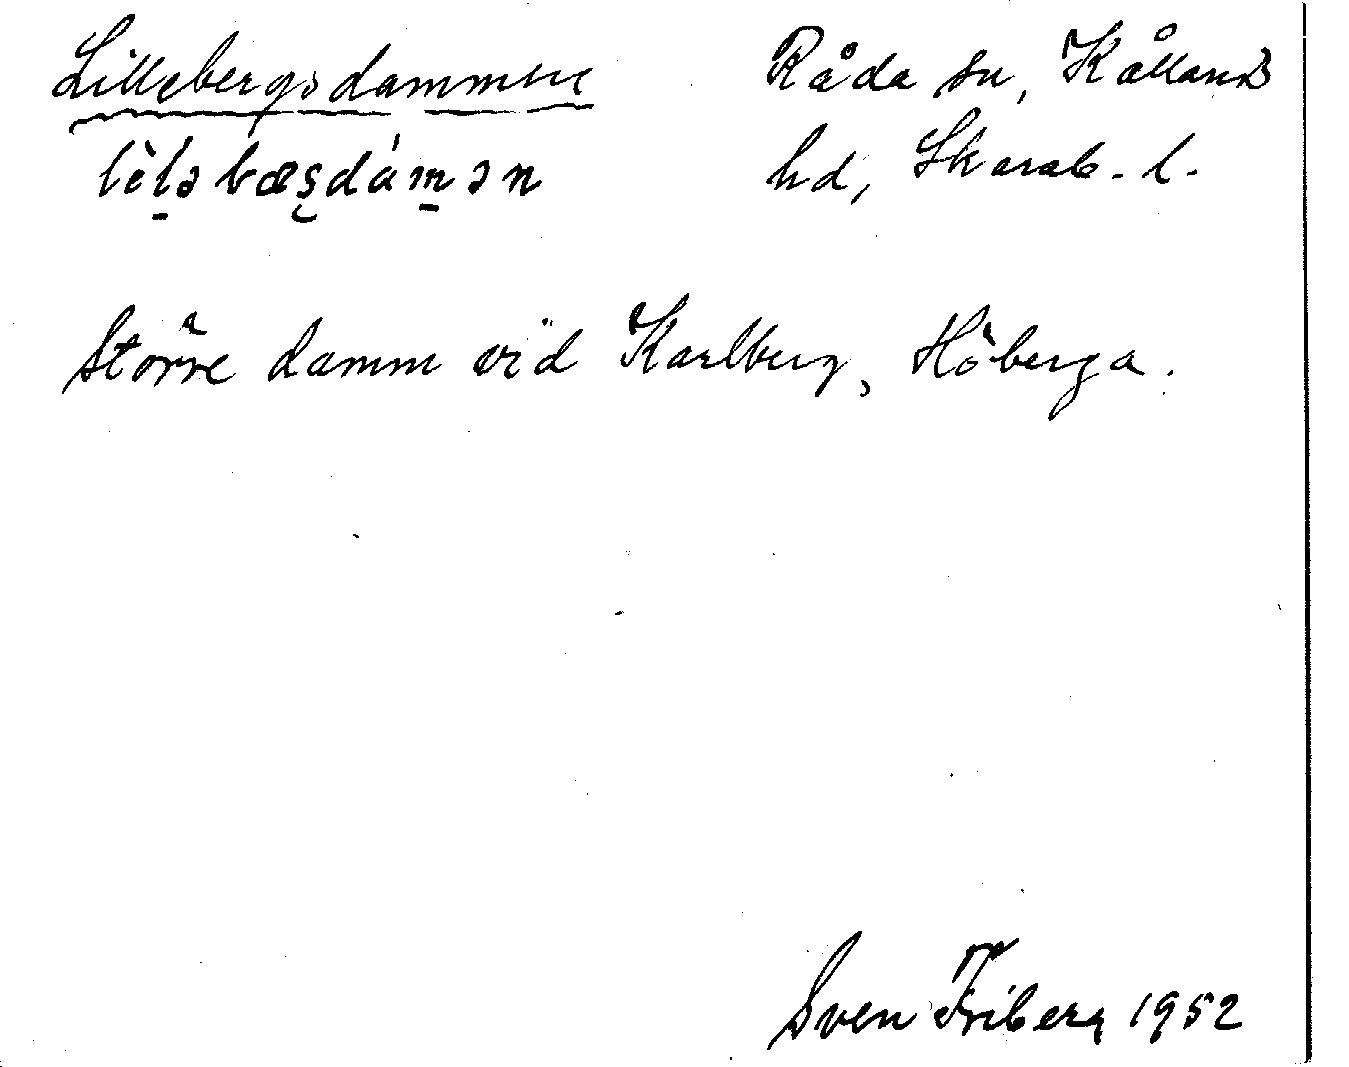 Lillebergsdammen
lèlə bæşdámən
Råda sn, Kålland
hd, Skarab. l.
Större damm vid Karlberg, Höberga.
Sven Friberg 1952